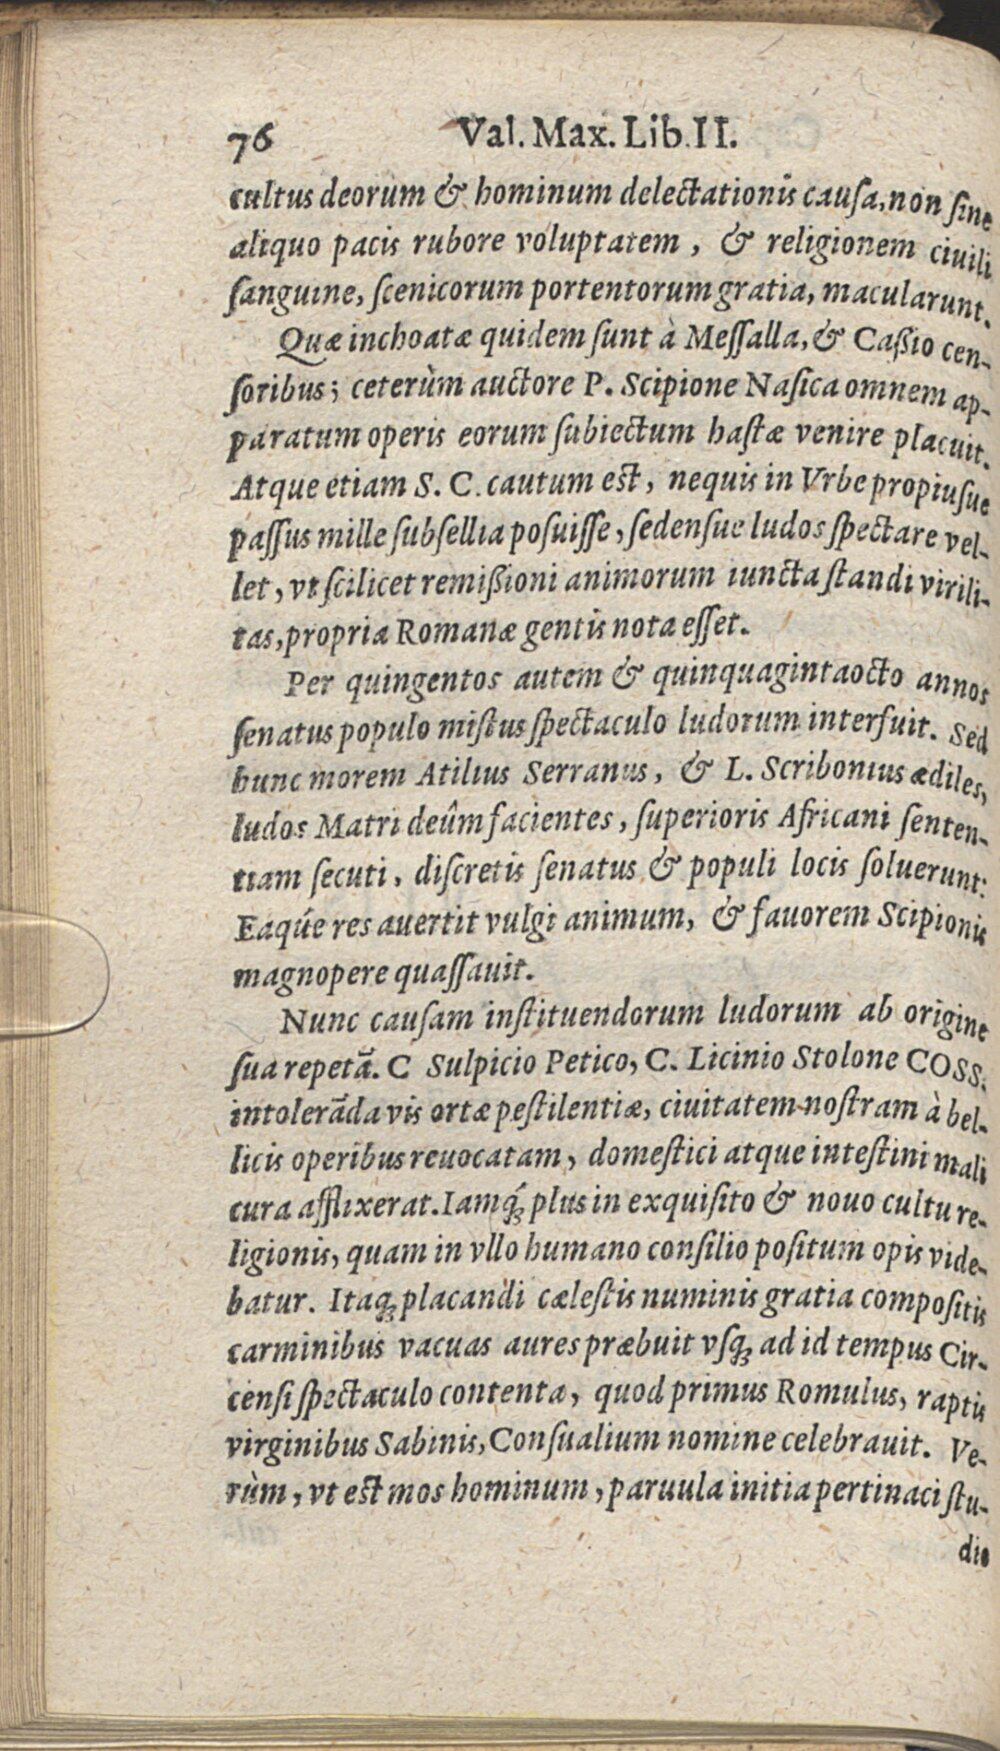 76 Val. Max. Lib. II.
cultus deorum & hominum delectationis cauſa, non ſine
aliquo pacis rubore voluptatem, & religionem ciuili
ſanguine, ſcenicorum portentorum gratia, macularunt.
Quæ inchoatæ quidem ſunt à Meſſalla, & Caßio cen-
ſoribus; ceterùm auctore P. Scipione Naſica omnem ap-
paratum operis eorum ſubiectum haſtæ venire placuit.
Atque etiam S. C. cautum eſt, nequis in Vrbe propiuſue
paſſus mille ſubſellia poſuiſſe, ſedenſue ludos ſpectare vel-
let, vt ſcilicet remißioni animorum iuncta ſtandi virili-
tas, propria Romanæ gentis nota eſſet.
Per quingentos autem & quinquagintaocto annos
ſenatus populo miſtus ſpectaculo ludorum interfuit. Sed
hunc morem Atilius Serranus, & L. Scribonius ædiles,
ludos Matri deûm facientes, ſuperioris Africani ſenten-
tiam ſecuti, diſcretis ſenatus & populi locis ſoluerunt:
Eaqúe res auertit vulgi animum, & fauorem Scipionis
magnopere quaſſauit.
Nunc cauſam inſtituendorum ludorum ab origine
ſua repetā. C Sulpicio Petico, C. Licinio Stolone COSS.
intolerāda vis ortæ peſtilentiæ, ciuitatem noſtram à bel-
licis operibus reuocatam, domeſtici atque inteſtini mali
cura afflixerat. Iamq́ꝫ plus in exquiſito & nouo cultu re-
ligionis, quam in vllo humano conſilio poſitum opis vide-
batur. Itaqꝫ placandi cæleſtis numinis gratia compoſitis
carminibus vacuas aures præbuit vſqꝫ ad id tempus Cir-
cenſi ſpectaculo contenta, quod primus Romulus, raptis
virginibus Sabinis, Conſualium nomine celebrauit. Ve-
rùm, vt eſt mos hominum, paruula initia pertinaci ſtu-
dio